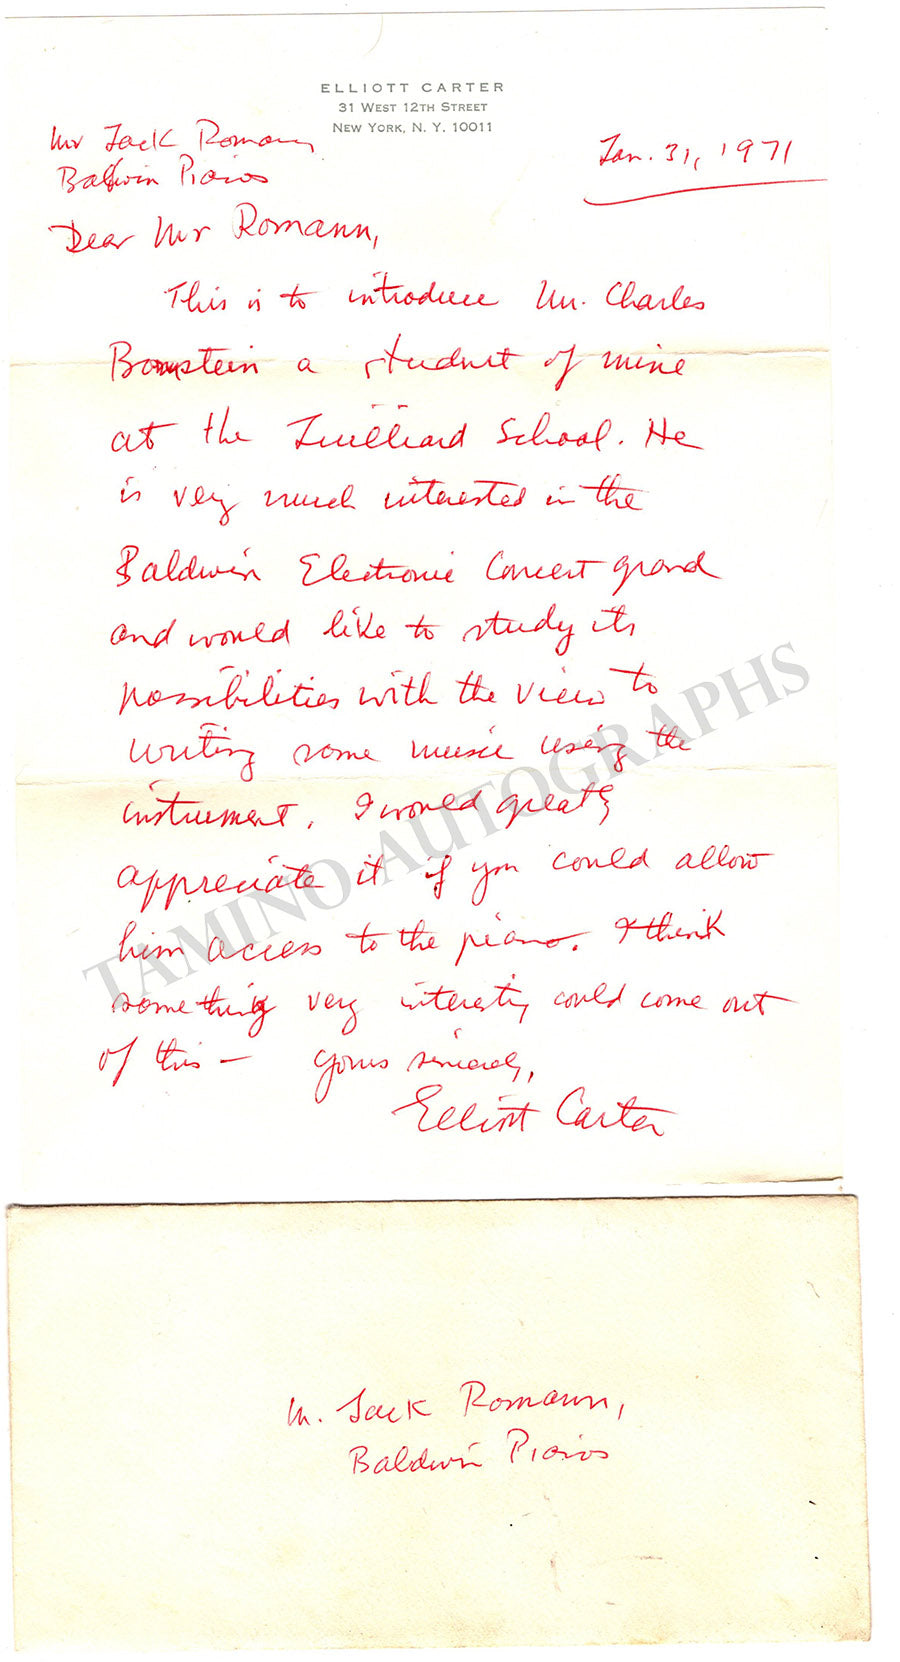 ELLIOTT CARTER
31 WEST 12TH STREET
NEW YORK, N. Y. 10011
Mr Jack Romann
Baldwin Pianos
Jan. 31, 1971
Dear Mr Romann,
This is to introduce Mr. Charles
Bornstein a student of mine
at the Juilliard School. He
is very much interested in the
Baldwin Electronic Concert grand
and would like to study its
possibilities with the view to
writing some music using the
instrument. I would greatly
appreciate it if you could allow
him access to the piano. I think
something very interesting could come out
of this — Yours sincerely,
Elliott Carter
TAMINO AUTOGRAPHS
M. Jack Romann,
Baldwin Pianos